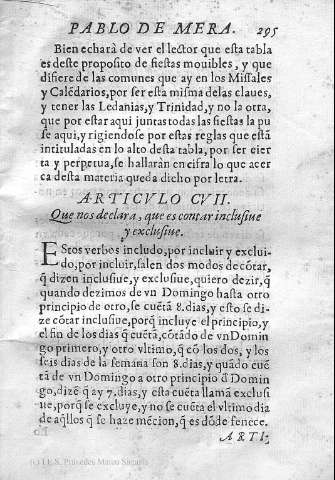 PABLO DE MERA. 295
Bien echarà de ver el lector que esta tabla
es deste proposito de fiestas mouibles, y que
difiere de las comunes que ay en los Missales
y Calẽdarios, por ser esta misma de las claues,
y tener las Ledanias, y Trinidad, y no la otra,
que por estar aqui juntas todas las fiestas la pu
se aqui, y rigiendose por estas reglas que estã
intituladas en lo alto desta tabla, por ser cier
ta y perpetua, se hallaràn en cifra lo que acer
ca desta materia queda dicho por letra.
ARTICVLO CVII.
Que nos declara, que es contar inclusiue
y exclusiue.
EStos verbos includo, por incluir y exclui-
do, por incluir, salen dos modos de cõtar,
q̃ dizen inclusiue, y exclusiue, quiero dezir, q̃
quando dezimos de vn Domingo hasta otro
principio de otro, se cuẽtã 8. dias, y esto se di
ze cõtar inclusiue, porq̃ incluye el principio, y
el fin de los dias q̃ cuẽtã, cõtãdo de vn Domin
go primero, y otro vltimo, q̃ cõ los dos, y los
seis dias de la semana son 8. dias, y quãdo cuẽ
tã de vn Domingo a otro principio d̃ Domin
go, dizẽ q̃ ay 7. dias, y esta cuẽta llamã exclusi
ue, porq̃ se excluye, y no se cuẽta el vltimo dia
de aq̃llos q̃ se haze mẽcion, q̃ es dõde fenece.
ARTI-
(c) I.E.S. Práxedes Mateo Sagasta